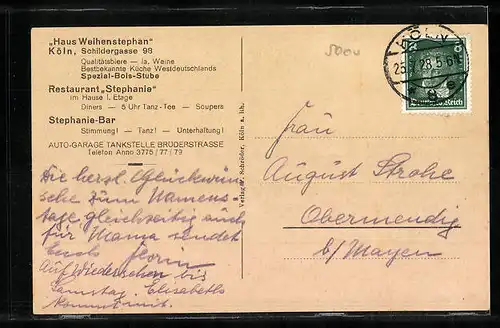 „Haus Weihenstephan"
Köln, Schildergasse 98
Qualitätsbiere — Ia. Weine
Bestbekannte Küche Westdeutschlands
Spezial-Bols-Stube
Restaurant „Stephanie"
im Hause I. Etage
Diners — 5 Uhr Tanz-Tee — Soupers
Stephanie-Bar
Stimmung! — Tanz! — Unterhaltung!
AUTO-GARAGE TANKSTELLE BRÜDERSTRASSE
Telefon Anno 3775 / 77 / 79
Die herzl. Glückwün-
sche zum Namens-
tage gleichzeitig auch
für Mama sendet
Euch
Auf Wiedersehen bis
Samstag. Elisabeth
kommt mit.
Verlag W. Schröder, Köln a. Rh.
KÖLN
8
Deutsches Reich
Frau
August Strohe
Obermendig
b/Mayen